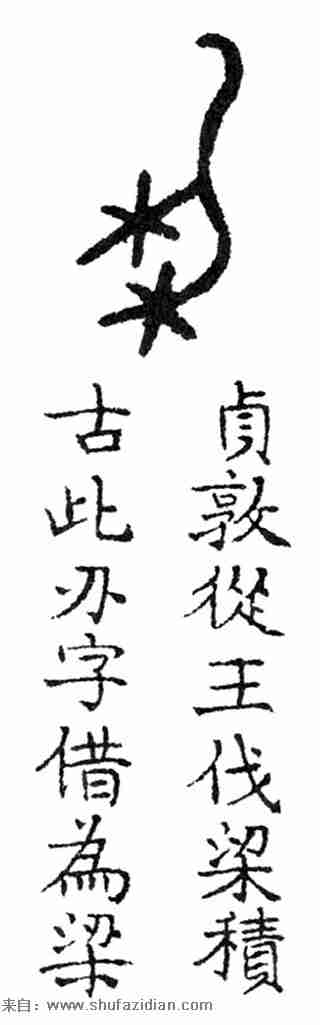 貞敦從王伐梁積
古此刅字借為梁
来自：www.shufazidian.com